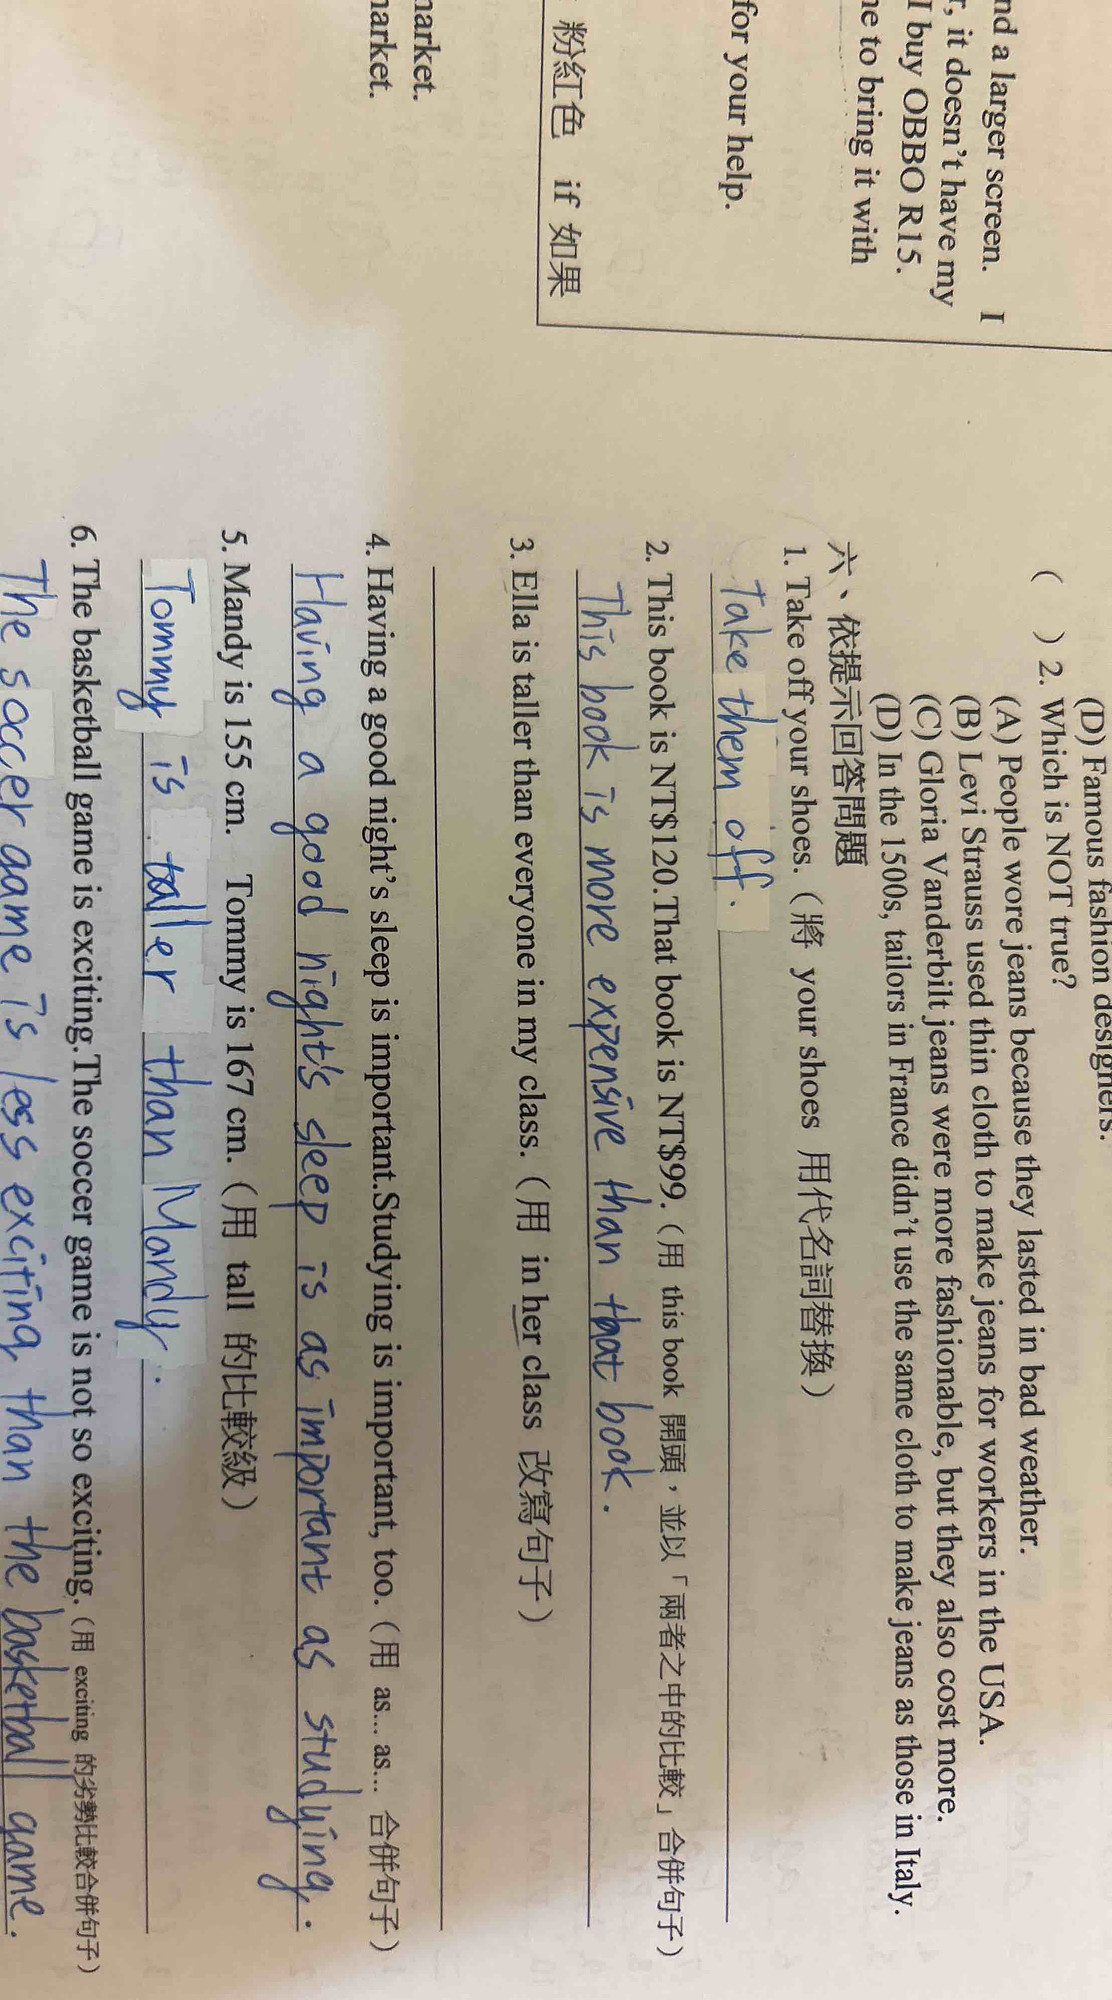 nd a larger screen. I
r, it doesn't have my
I buy OBBO R15.
ne to bring it with
for your help.
粉紅色 if 如果
narket.
narket.
(D) Famous fashion designers.
( ) 2. Which is NOT true?
(A) People wore jeans because they lasted in bad weather.
(B) Levi Strauss used thin cloth to make jeans for workers in the USA.
(C) Gloria Vanderbilt jeans were more fashionable, but they also cost more.
(D) In the 1500s, tailors in France didn't use the same cloth to make jeans as those in Italy.
六、依提示回答問題
1. Take off your shoes.（將 your shoes 用代名詞替換）
Take them off.
2. This book is NT$120.That book is NT$99.（用 this book 開頭，並以「兩者之中的比較」合併句子）
This book is more expensive than that book.
3. Ella is taller than everyone in my class.（用 in her class 改寫句子）
4. Having a good night's sleep is important.Studying is important, too.（用 as... as... 合併句子）
Having a good night's sleep is as important as studying.
5. Mandy is 155 cm. Tommy is 167 cm.（用 tall 的比較級）
Tommy is taller than Mandy.
6. The basketball game is exciting.The soccer game is not so exciting.（用 exciting 的劣勢比較合併句子）
The soccer game is less exciting than the basketball game.